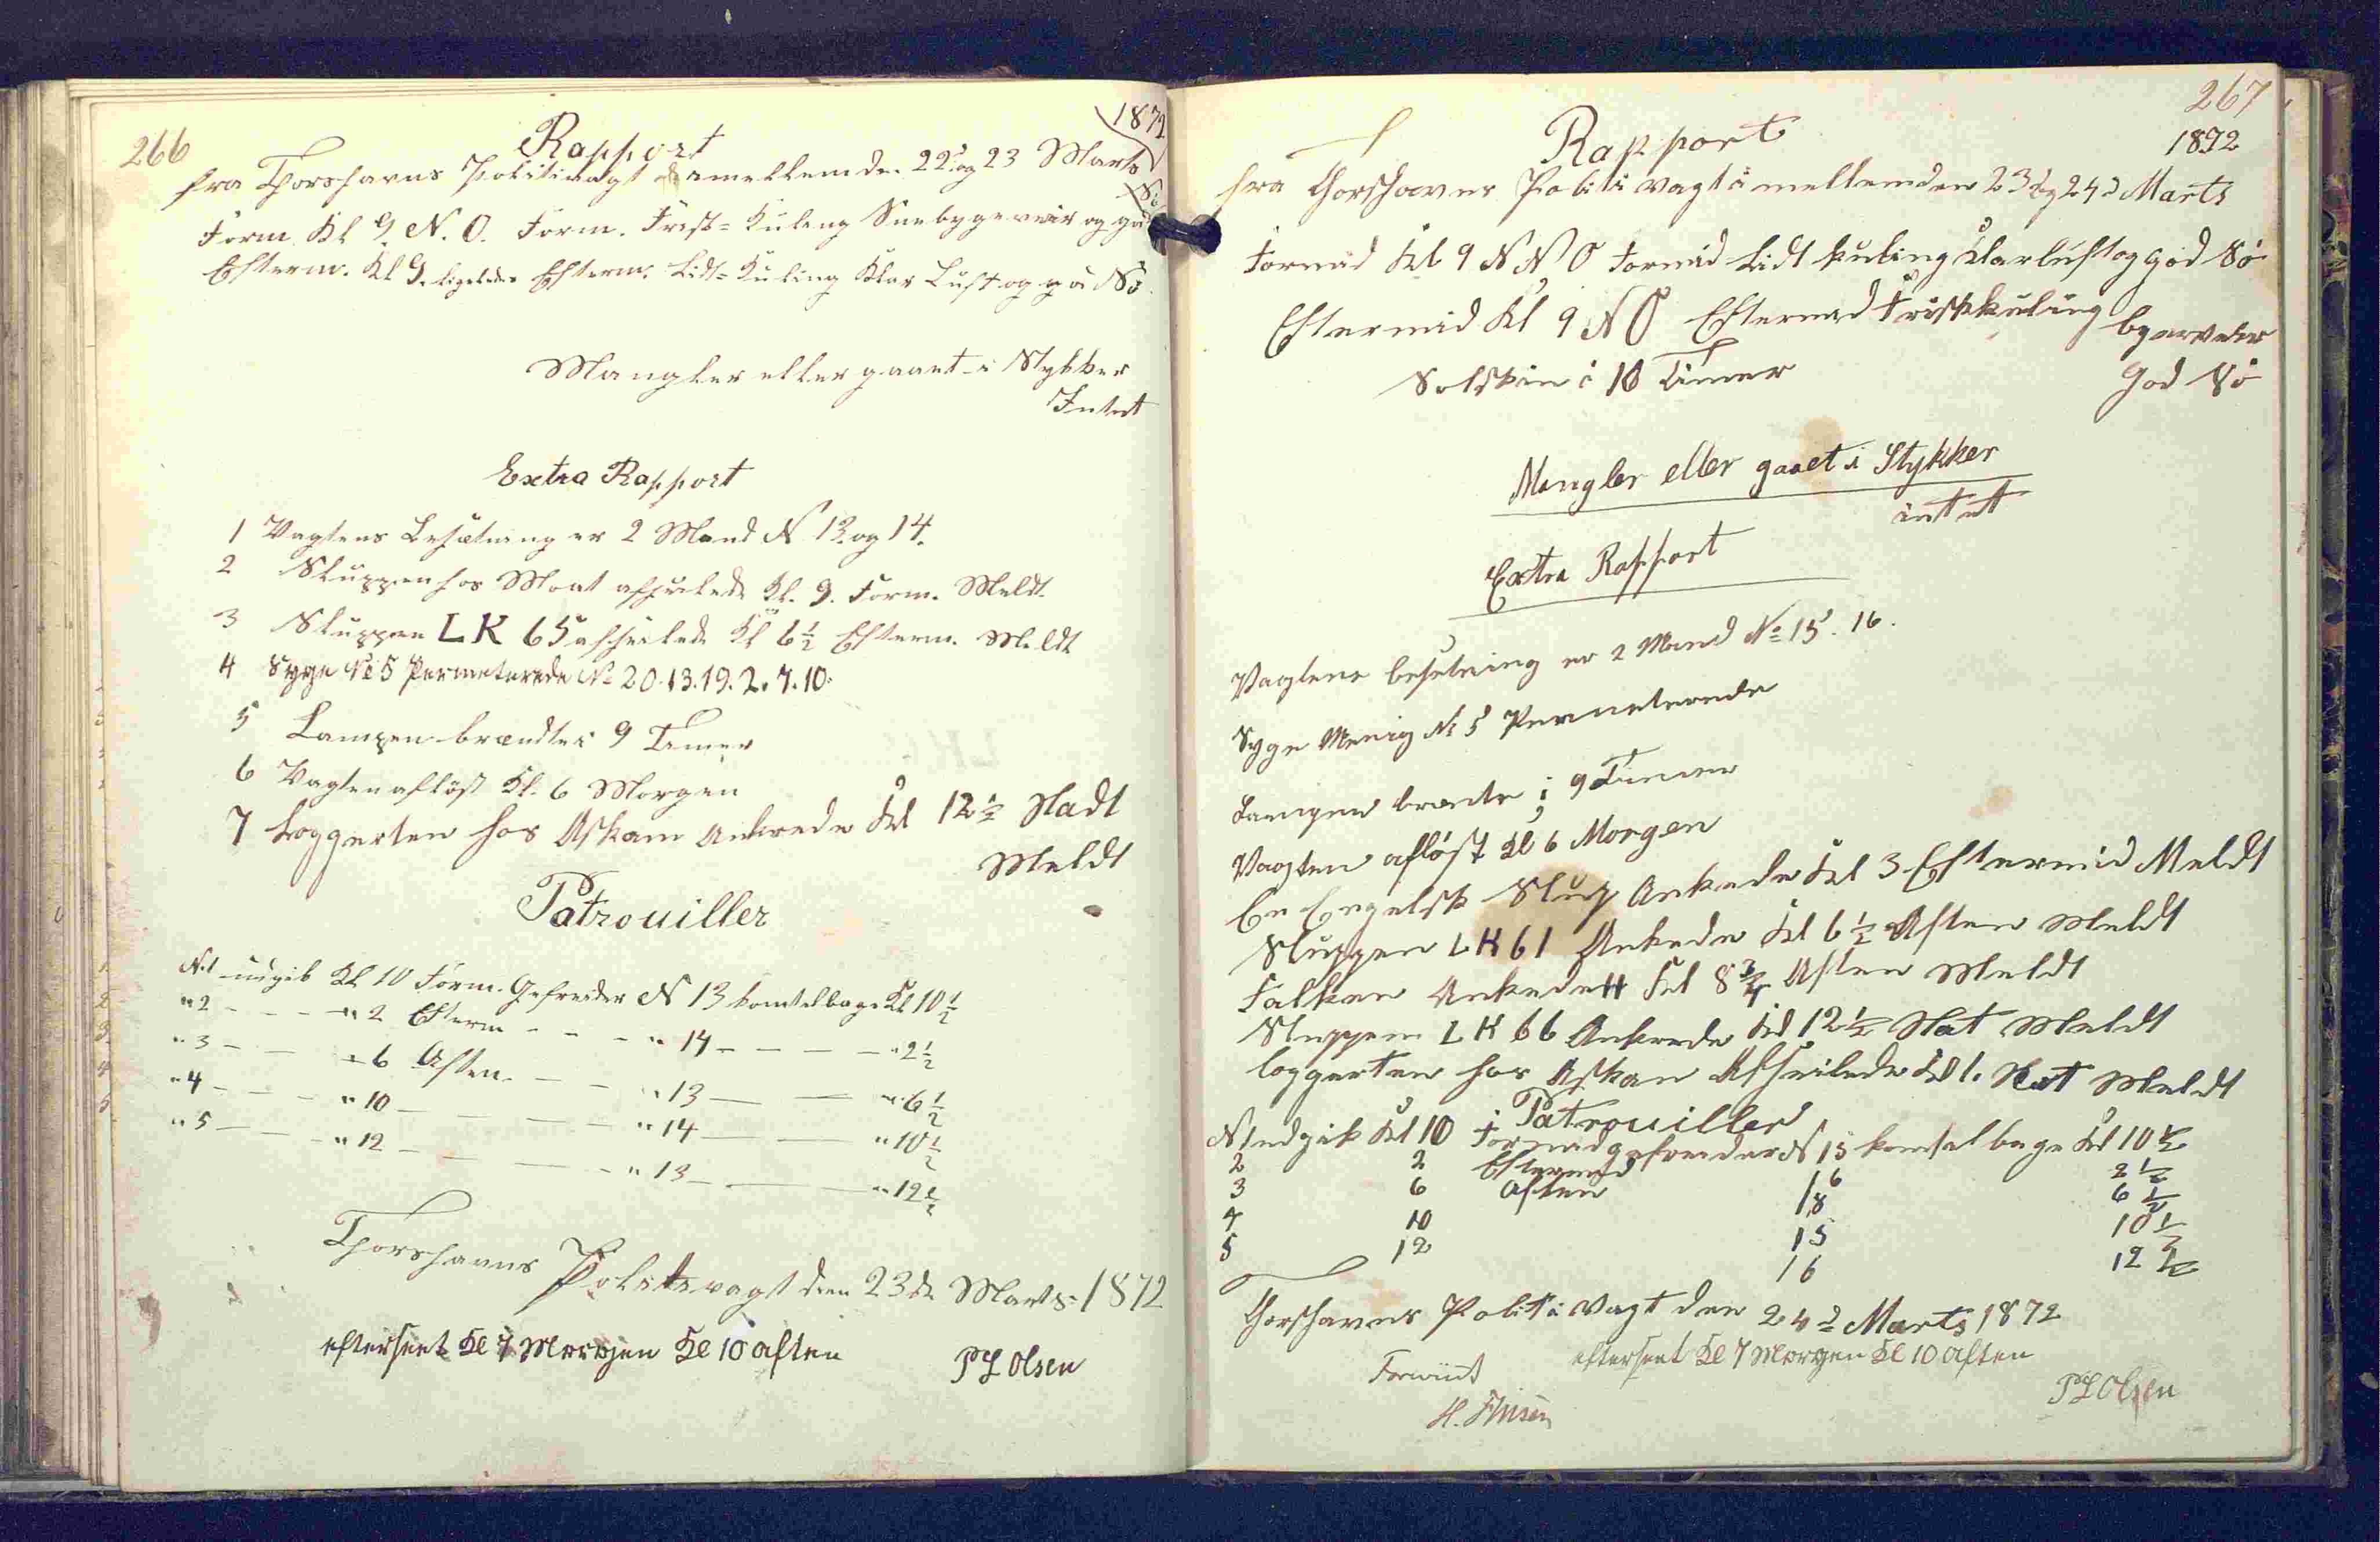 266
1872
Rapport
fra Thorshavns Politivagt imellem de. 22d og 23 Marts
Form. Kl 9. N. O. Form. Frisk=Kuling Sneebygeveir og god
Sö
Efterm. Kl 9. ligeledes Efterm. Lidt=Kuling Klar Luft og go Sö.
Mangler eller gaaet i Stykker
Intet
Extra Rapport
1 Vagtens Besætning er 2 Mand N 13. og 14.
2 Sluppen hos Moat afseilede Kl. 9. Form. Meldt
3 Sluppen LK 65 afseilede Kl 6½ Efterm. Meldt
4 Syge No 5 Permeterede No 20. 13. 19. 2. 7. 10.
5 Lampen brændte i 9 Timer
6 Vagten aflöst Kl. 6 Morgen
7 Loggerten hos Askam Ankrede Kl 12½ Nadt
Meldt
Patrouiller
N. 1 udgik Kl 10 Form. Gefreider N 13 kom tilbage Kl 10½
" 2 - - - " 2 Efterm - - - " 14 - - - - " 2½
" 3 - - - " 6 Aften - - " 13 - - " 6½
" 4 - - - " 10 - - - - " 14 - - " 10½
" 5 - - - " 12 - - - - " 13 - - " 12½
Thorshavns Politivagt den 23de Marts 1872
efterseet Kl 7 Morgen Kl 10 Aften
P L Olsen
267
1872
Rapport
fra Thorshavns Politivagt i mellem den 23d og 24d Marts
Formid Kl 9 N N O Formid Lidt kuling Klarluft og god Sö
Eftermid Kl 9 N O Eftermid Friskkuling bygeveir
Solskin i 10 Timer
God Sö
Mangler eller gaaet i Stykker
intet
Extra Rapport
Vagtens besetning er 2 Mand No 15. 16.
Syge Menig No 5 Permeterede
Lampen brænte i 9 Timer
Vagten aflöst Kl 6 Morgen
En Engelsk Slup Ankede Kl 3 Eftermid Meldt
Sluppen LK 61 Ankede Kl 6½ Aften Meldt
Falken Ankede Kl 8¾ Aften Meldt
Sluppen LK 66 Ankrede Kl 12½ Nat Meldt
loggerten hos Askan Afseilede Kl 1. Nat Meldt
Patrouiller
N 1 udgik Kl 10 Formid gefreider N 15 kom tel bage Kl 10½
2 2 Eftermid 16 2½
3 6 Aften 18 6½
4 10 15 10½
5 12 16 12½
Thorshavns Politi Vagt den 24d Marts 1872
efterseet Kl 7 Morgen Kl 10 Aften
Forevist
P L Olsen
H. Finsen